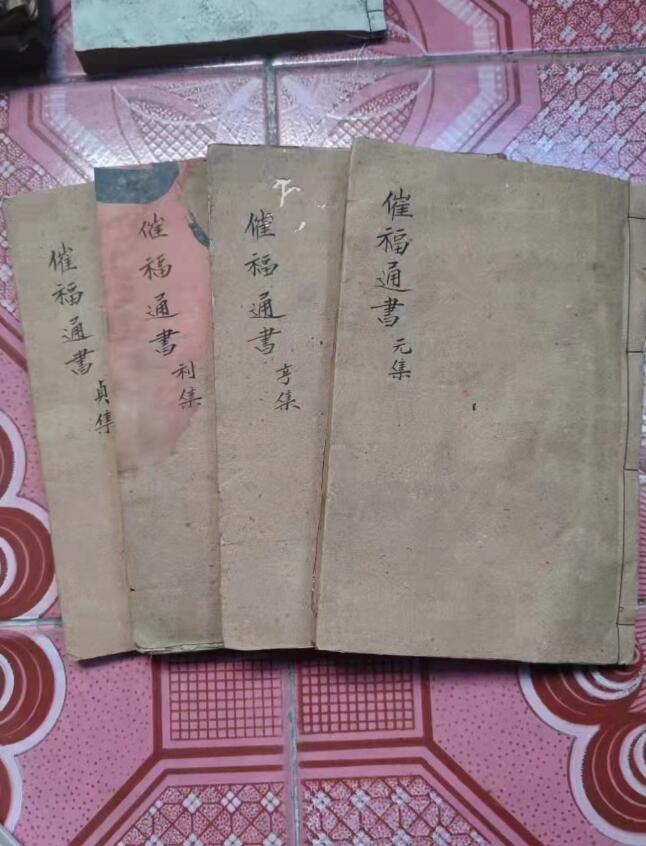 催福通書
元集
催福通書
亨集
催福通書
利集
催福通書
貞集